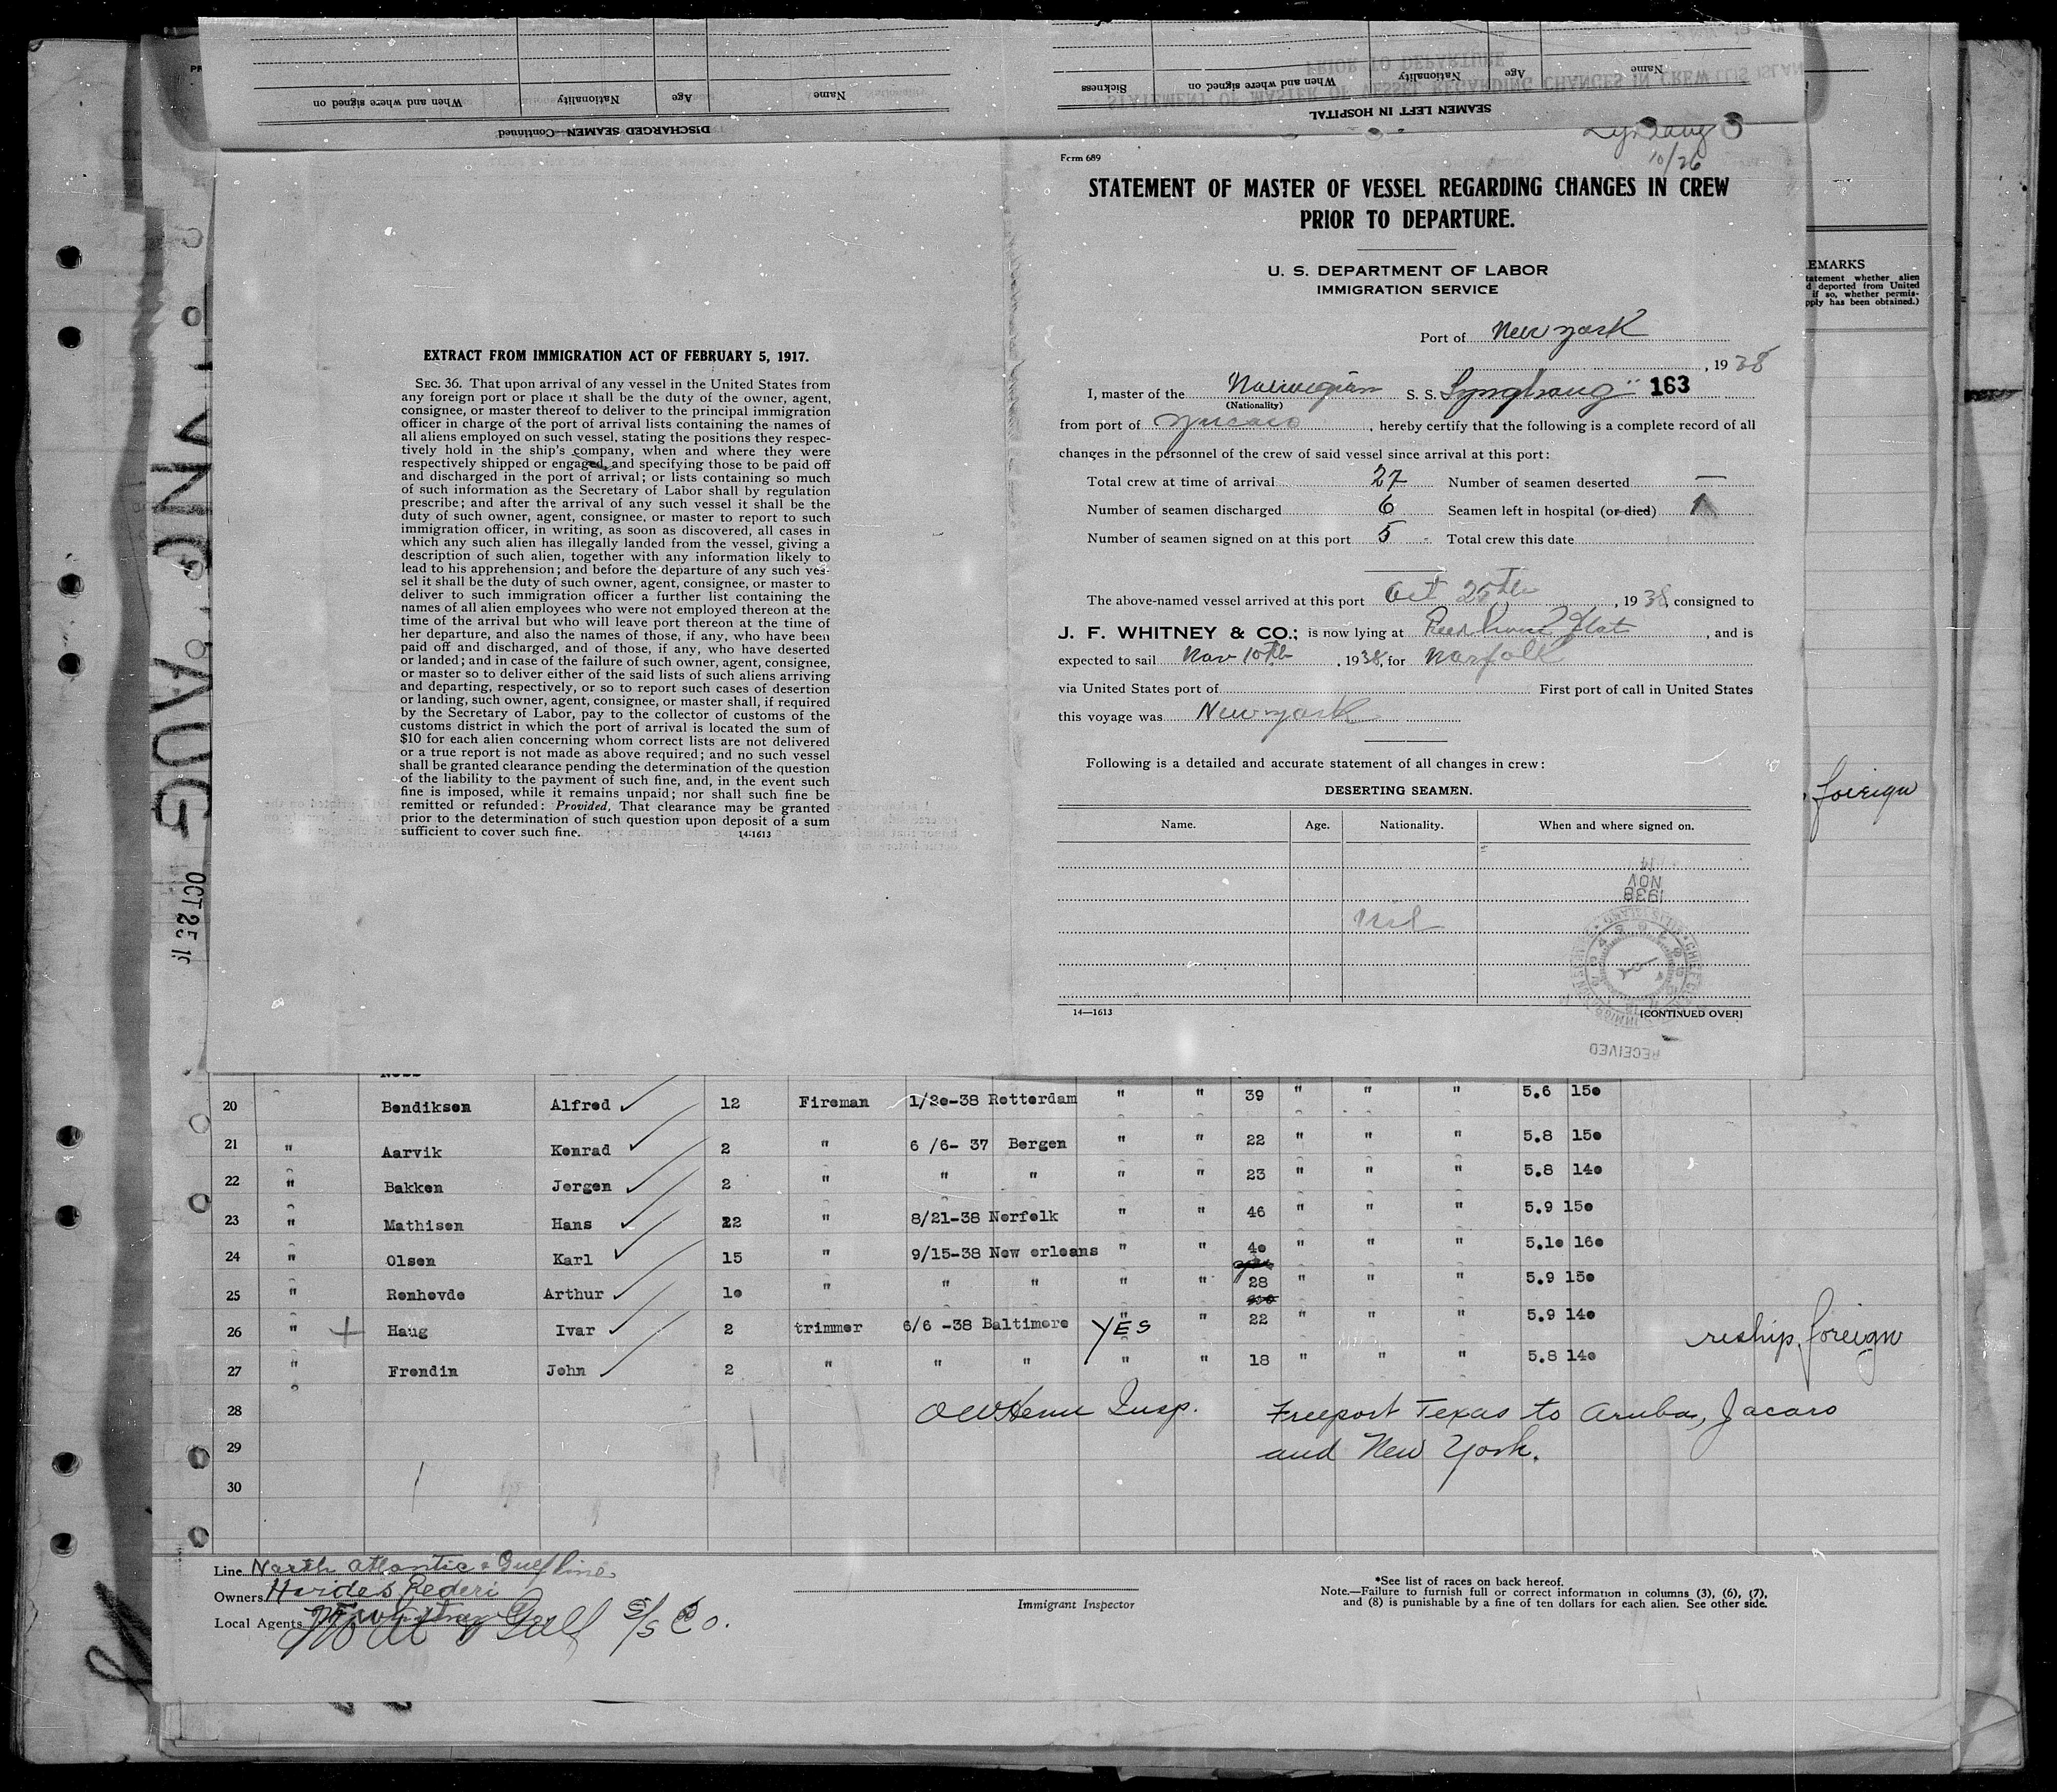 DISCHARGED SEAMEN—Continued
Name
Age
Nationality
When and where signed on
SEAMEN LEFT IN HOSPITAL
Name
Age
Nationality
When and where signed on
Sickness
STATEMENT OF MASTER OF VESSEL REGARDING CHANGES IN CREW
PRIOR TO DEPARTURE
10/26
EXTRACT FROM IMMIGRATION ACT OF FEBRUARY 5, 1917.
SEC. 36. That upon arrival of any vessel in the United States from
any foreign port or place it shall be the duty of the owner, agent,
consignee, or master thereof to deliver to the principal immigration
officer in charge of the port of arrival lists containing the names of
all aliens employed on such vessel, stating the positions they respec-
tively hold in the ship's company, when and where they were
respectively shipped or engaged, and specifying those to be paid off
and discharged in the port of arrival; or lists containing so much
of such information as the Secretary of Labor shall by regulation
prescribe; and after the arrival of any such vessel it shall be the
duty of such owner, agent, consignee, or master to report to such
immigration officer, in writing, as soon as discovered, all cases in
which any such alien has illegally landed from the vessel, giving a
description of such alien, together with any information likely to
lead to his apprehension; and before the departure of any such ves-
sel it shall be the duty of such owner, agent, consignee, or master to
deliver to such immigration officer a further list containing the
names of all alien employees who were not employed thereon at the
time of the arrival but who will leave port thereon at the time of
her departure, and also the names of those, if any, who have been
paid off and discharged, and of those, if any, who have deserted
or landed; and in case of the failure of such owner, agent, consignee,
or master so to deliver either of the said lists of such aliens arriving
and departing, respectively, or so to report such cases of desertion
or landing, such owner, agent, consignee, or master shall, if required
by the Secretary of Labor, pay to the collector of customs of the
customs district in which the port of arrival is located the sum of
$10 for each alien concerning whom correct lists are not delivered
or a true report is not made as above required; and no such vessel
shall be granted clearance pending the determination of the question
of the liability to the payment of such fine, and, in the event such
fine is imposed, while it remains unpaid; nor shall such fine be
remitted or refunded: Provided, That clearance may be granted
prior to the determination of such question upon deposit of a sum
sufficient to cover such fine. 14-1613
Form 689
STATEMENT OF MASTER OF VESSEL REGARDING CHANGES IN CREW
PRIOR TO DEPARTURE.
U. S. DEPARTMENT OF LABOR
IMMIGRATION SERVICE
Port of New York
, 1938
I, master of the Norwegian S. S. Lynghaug 163
(Nationality)
from port of , hereby certify that the following is a complete record of all
changes in the personnel of the crew of said vessel since arrival at this port:
Total crew at time of arrival 27 Number of seamen deserted —
Number of seamen discharged 6 Seamen left in hospital (or died) 1
Number of seamen signed on at this port 5 Total crew this date
The above-named vessel arrived at this port Oct 25th, 1938, consigned to
J. F. WHITNEY & CO.; is now lying at Flat, and is
expected to sail Nov 10th, 1938, for Norfolk
via United States port of First port of call in United States
this voyage was New York
Following is a detailed and accurate statement of all changes in crew:
DESERTING SEAMEN.
Name. Age. Nationality. When and where signed on.
nil
14
NOV
1938
RECEIVED
14—1613 [CONTINUED OVER]
EMARKS
tatement whether alien
d deported from United
if so, whether permis-
pply has been obtained.)
foreign
AUG
OCT 25
20 Bendiksen Alfred 12 Fireman 1/20-38 Rotterdam " " 39 " " " 5.6 150
21 " Aarvik Konrad 2 " 6 /6- 37 Bergen " " 22 " " " 5.8 150
22 " Bakken Jorgen 2 " " " " " 23 " " " 5.8 140
23 " Mathisen Hans 22 " 8/21-38 Norfolk " " 46 " " " 5.9 150
24 " Olsen Karl 15 " 9/15-38 New orleans " " 40 " " " 5.10 160
25 " Renhovde Arthur 10 " " " " " 28 " " " 5.9 150
26 " + Haug Ivar 2 trimmer 6/6 -38 Baltimore YES " 22 " " " 5.9 140 reship foreign
27 " Frondin John 2 " " " " " 18 " " " 5.8 140
28 Insp. Freeport Texas to Aruba, Jacaro
29 and New York.
30
Line North Atlantic & Gulf Line
Owners Hvides Rederi
Local Agents Gulf S/S Co.
Immigrant Inspector
*See list of races on back hereof.
Note.—Failure to furnish full or correct information in columns (3), (6), (7),
and (8) is punishable by a fine of ten dollars for each alien. See other side.